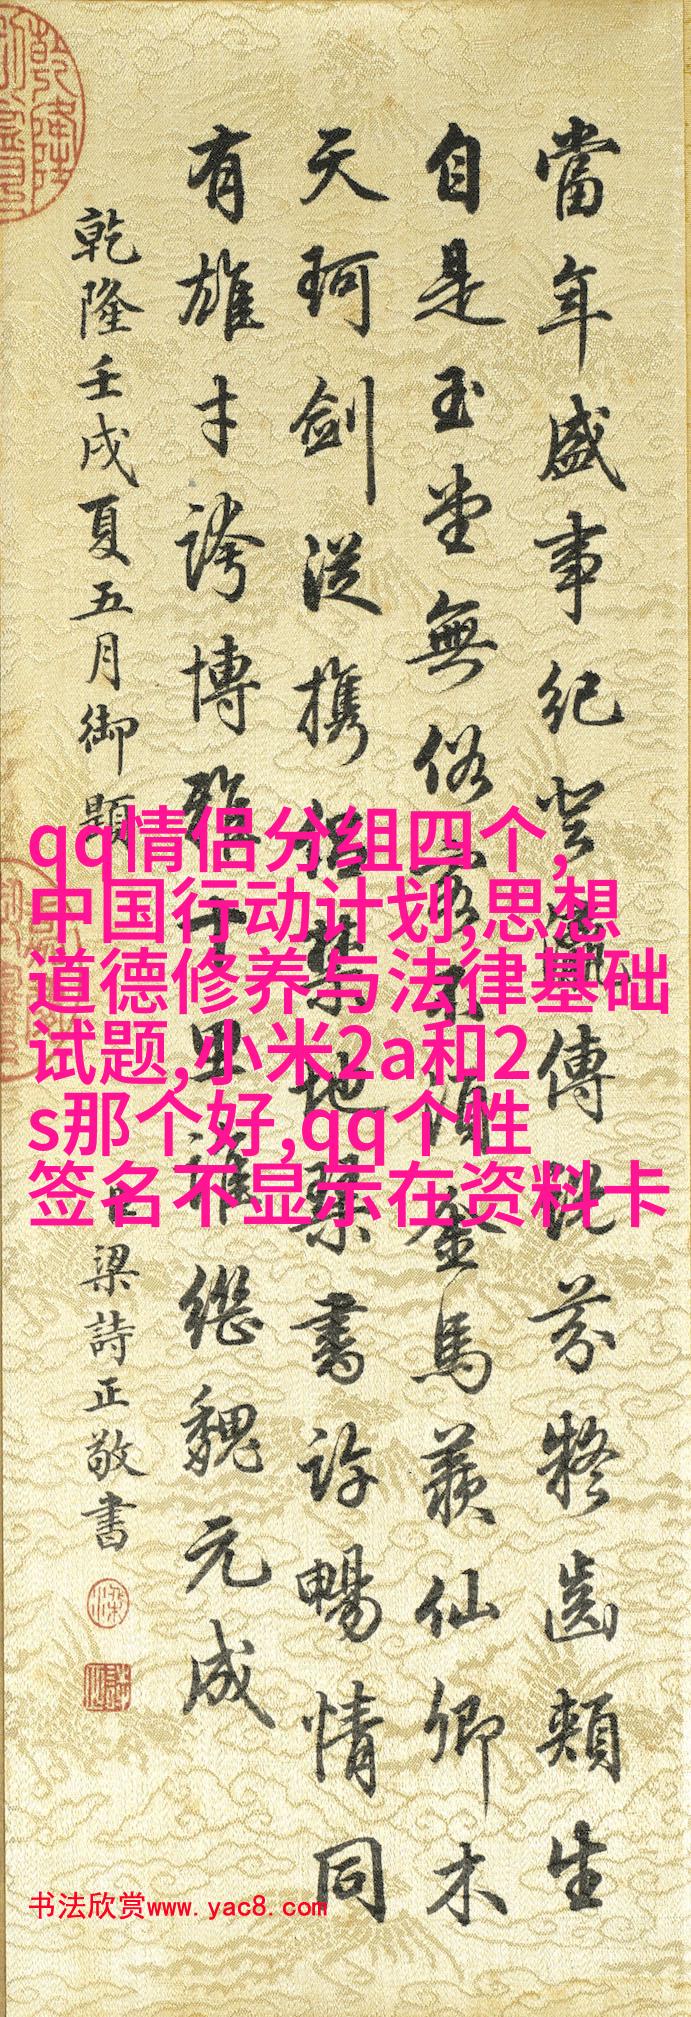 當年盛事紀登瀛傳說芬凝齒頰生
自是玉堂無俗客不須金馬羨仙卿木
天珂劍從攜侶禁地琹書許暢情同
有雄才誇博雅誰繼魏元成
乾隆壬戌夏五月御題
臣梁詩正敬書
qq情侣分组四个,
中国行动计划,思想
道德修养与法律基础
试题,小米2a和2
s那个好,qq个性
签名不显示在资料卡
书法欣赏www.yac8.com